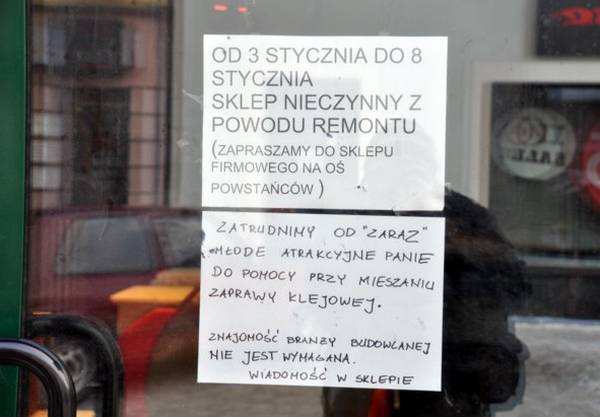 OD 3 STYCZNIA DO 8
STYCZNIA
SKLEP NIECZYNNY Z
POWODU REMONTU
(ZAPRASZAMY DO SKLEPU
FIRMOWEGO NA OŚ
POWSTAŃCÓW )
ZATRUDNIMY OD "ZARAZ"
MŁODE ATRAKCYJNE PANIE
DO POMOCY PRZY MIESZANIU
ZAPRAWY KLEJOWEJ.
ZNAJOMOŚĆ BRANŻY BUDOWLANEJ
NIE JEST WYMAGANA.
WIADOMOŚĆ W SKLEPIE